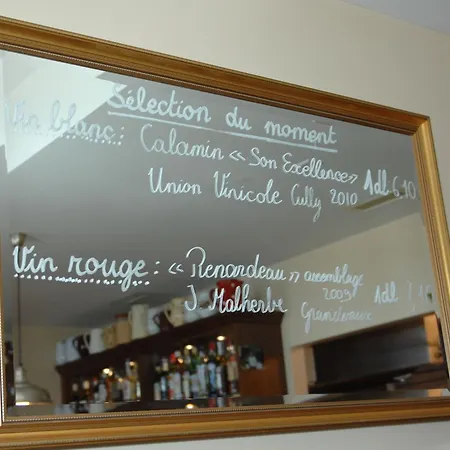 Sélection du moment
Vin blanc: Calamin « Son Excellence» 1dl 6.10
Union Vinicole Cully 2010
Vin rouge: « Renardeau » assemblage
J. Malherbe 2009 1dl
Grandvaux